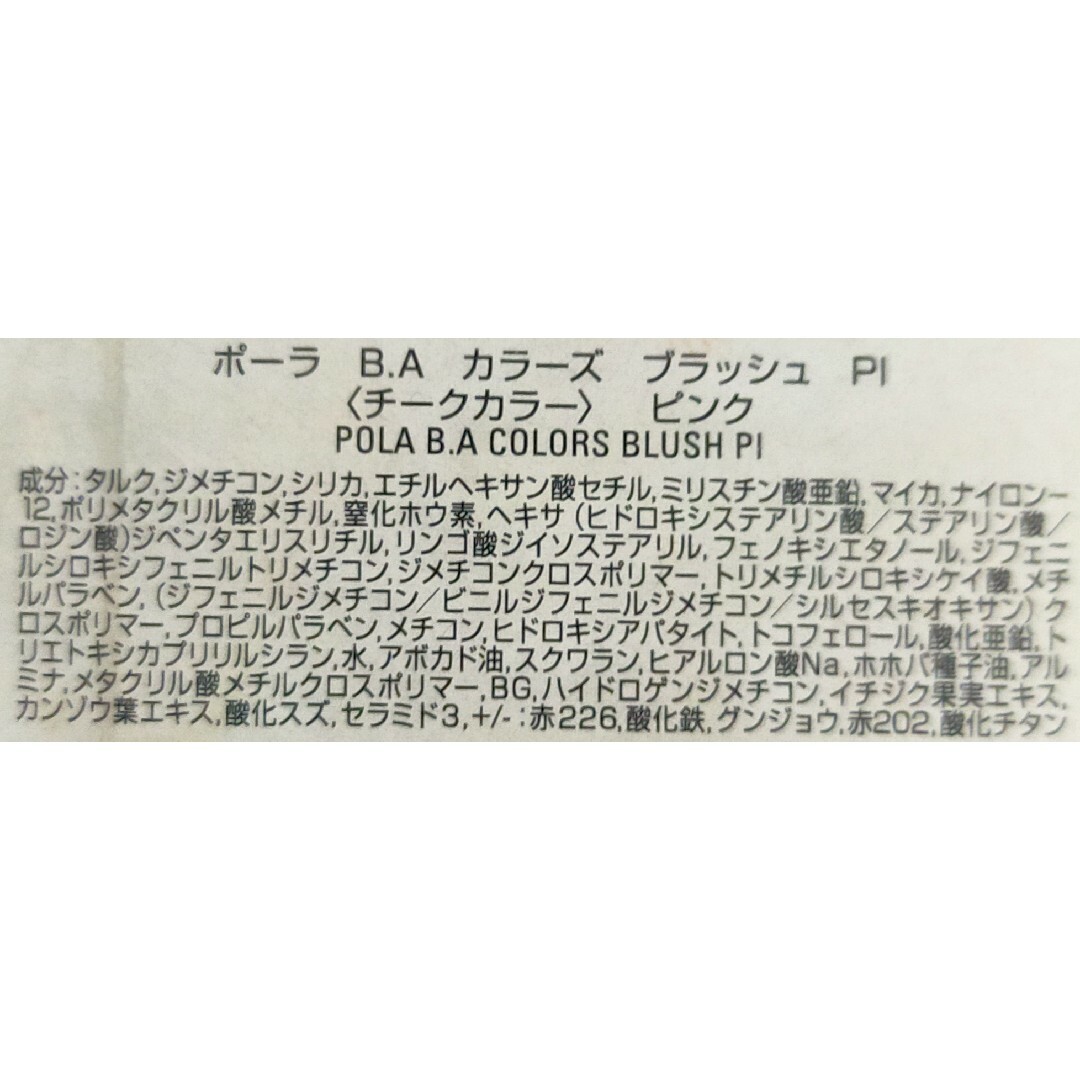 ポーラ B.A カラーズ ブラッシュ PI
〈チークカラー〉 ピンク
POLA B.A COLORS BLUSH PI
成分:タルク,ジメチコン,シリカ,エチルヘキサン酸セチル,ミリスチン酸亜鉛,マイカ,ナイロン−
12,ポリメタクリル酸メチル,窒化ホウ素,ヘキサ(ヒドロキシステアリン酸/ステアリン酸/
ロジン酸)ジペンタエリスリチル,リンゴ酸ジイソステアリル,フェノキシエタノール,ジフェニ
ルシロキシフェニルトリメチコン,ジメチコンクロスポリマー,トリメチルシロキシケイ酸,メチ
ルパラベン,(ジフェニルジメチコン/ビニルジフェニルジメチコン/シルセスキオキサン)ク
ロスポリマー,プロピルパラベン,メチコン,ヒドロキシアパタイト,トコフェロール,酸化亜鉛,ト
リエトキシカプリリルシラン,水,アボカド油,スクワラン,ヒアルロン酸Na,ホホバ種子油,アル
ミナ,メタクリル酸メチルクロスポリマー,BG,ハイドロゲンジメチコン,イチジク果実エキス,
カンゾウ葉エキス,酸化スズ,セラミド3,+/-:赤226,酸化鉄,グンジョウ,赤202,酸化チタン